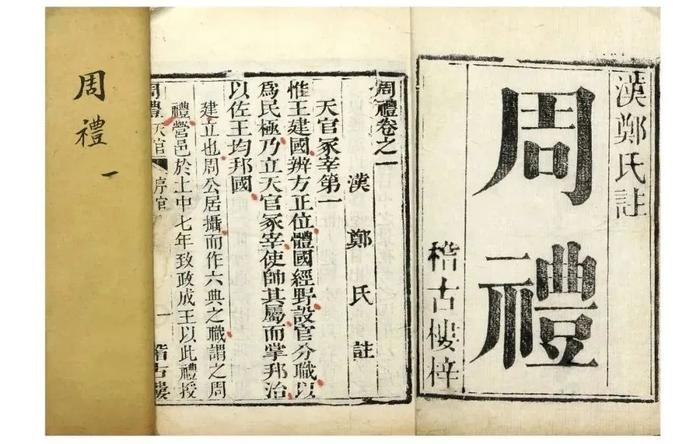 漢鄭氏註
周禮
稽古樓梓
周禮卷之一
漢鄭氏註
天官冢宰第一
惟王建國辨方正位體國經野設官分職以
爲民極乃立天官冢宰使帥其屬而掌邦治
以佐王均邦國
建立也周公居攝而作六典之職謂之周
禮營邑於土中七年致政成王以此禮授
周禮天官 序官 一 稽古樓
周禮 一